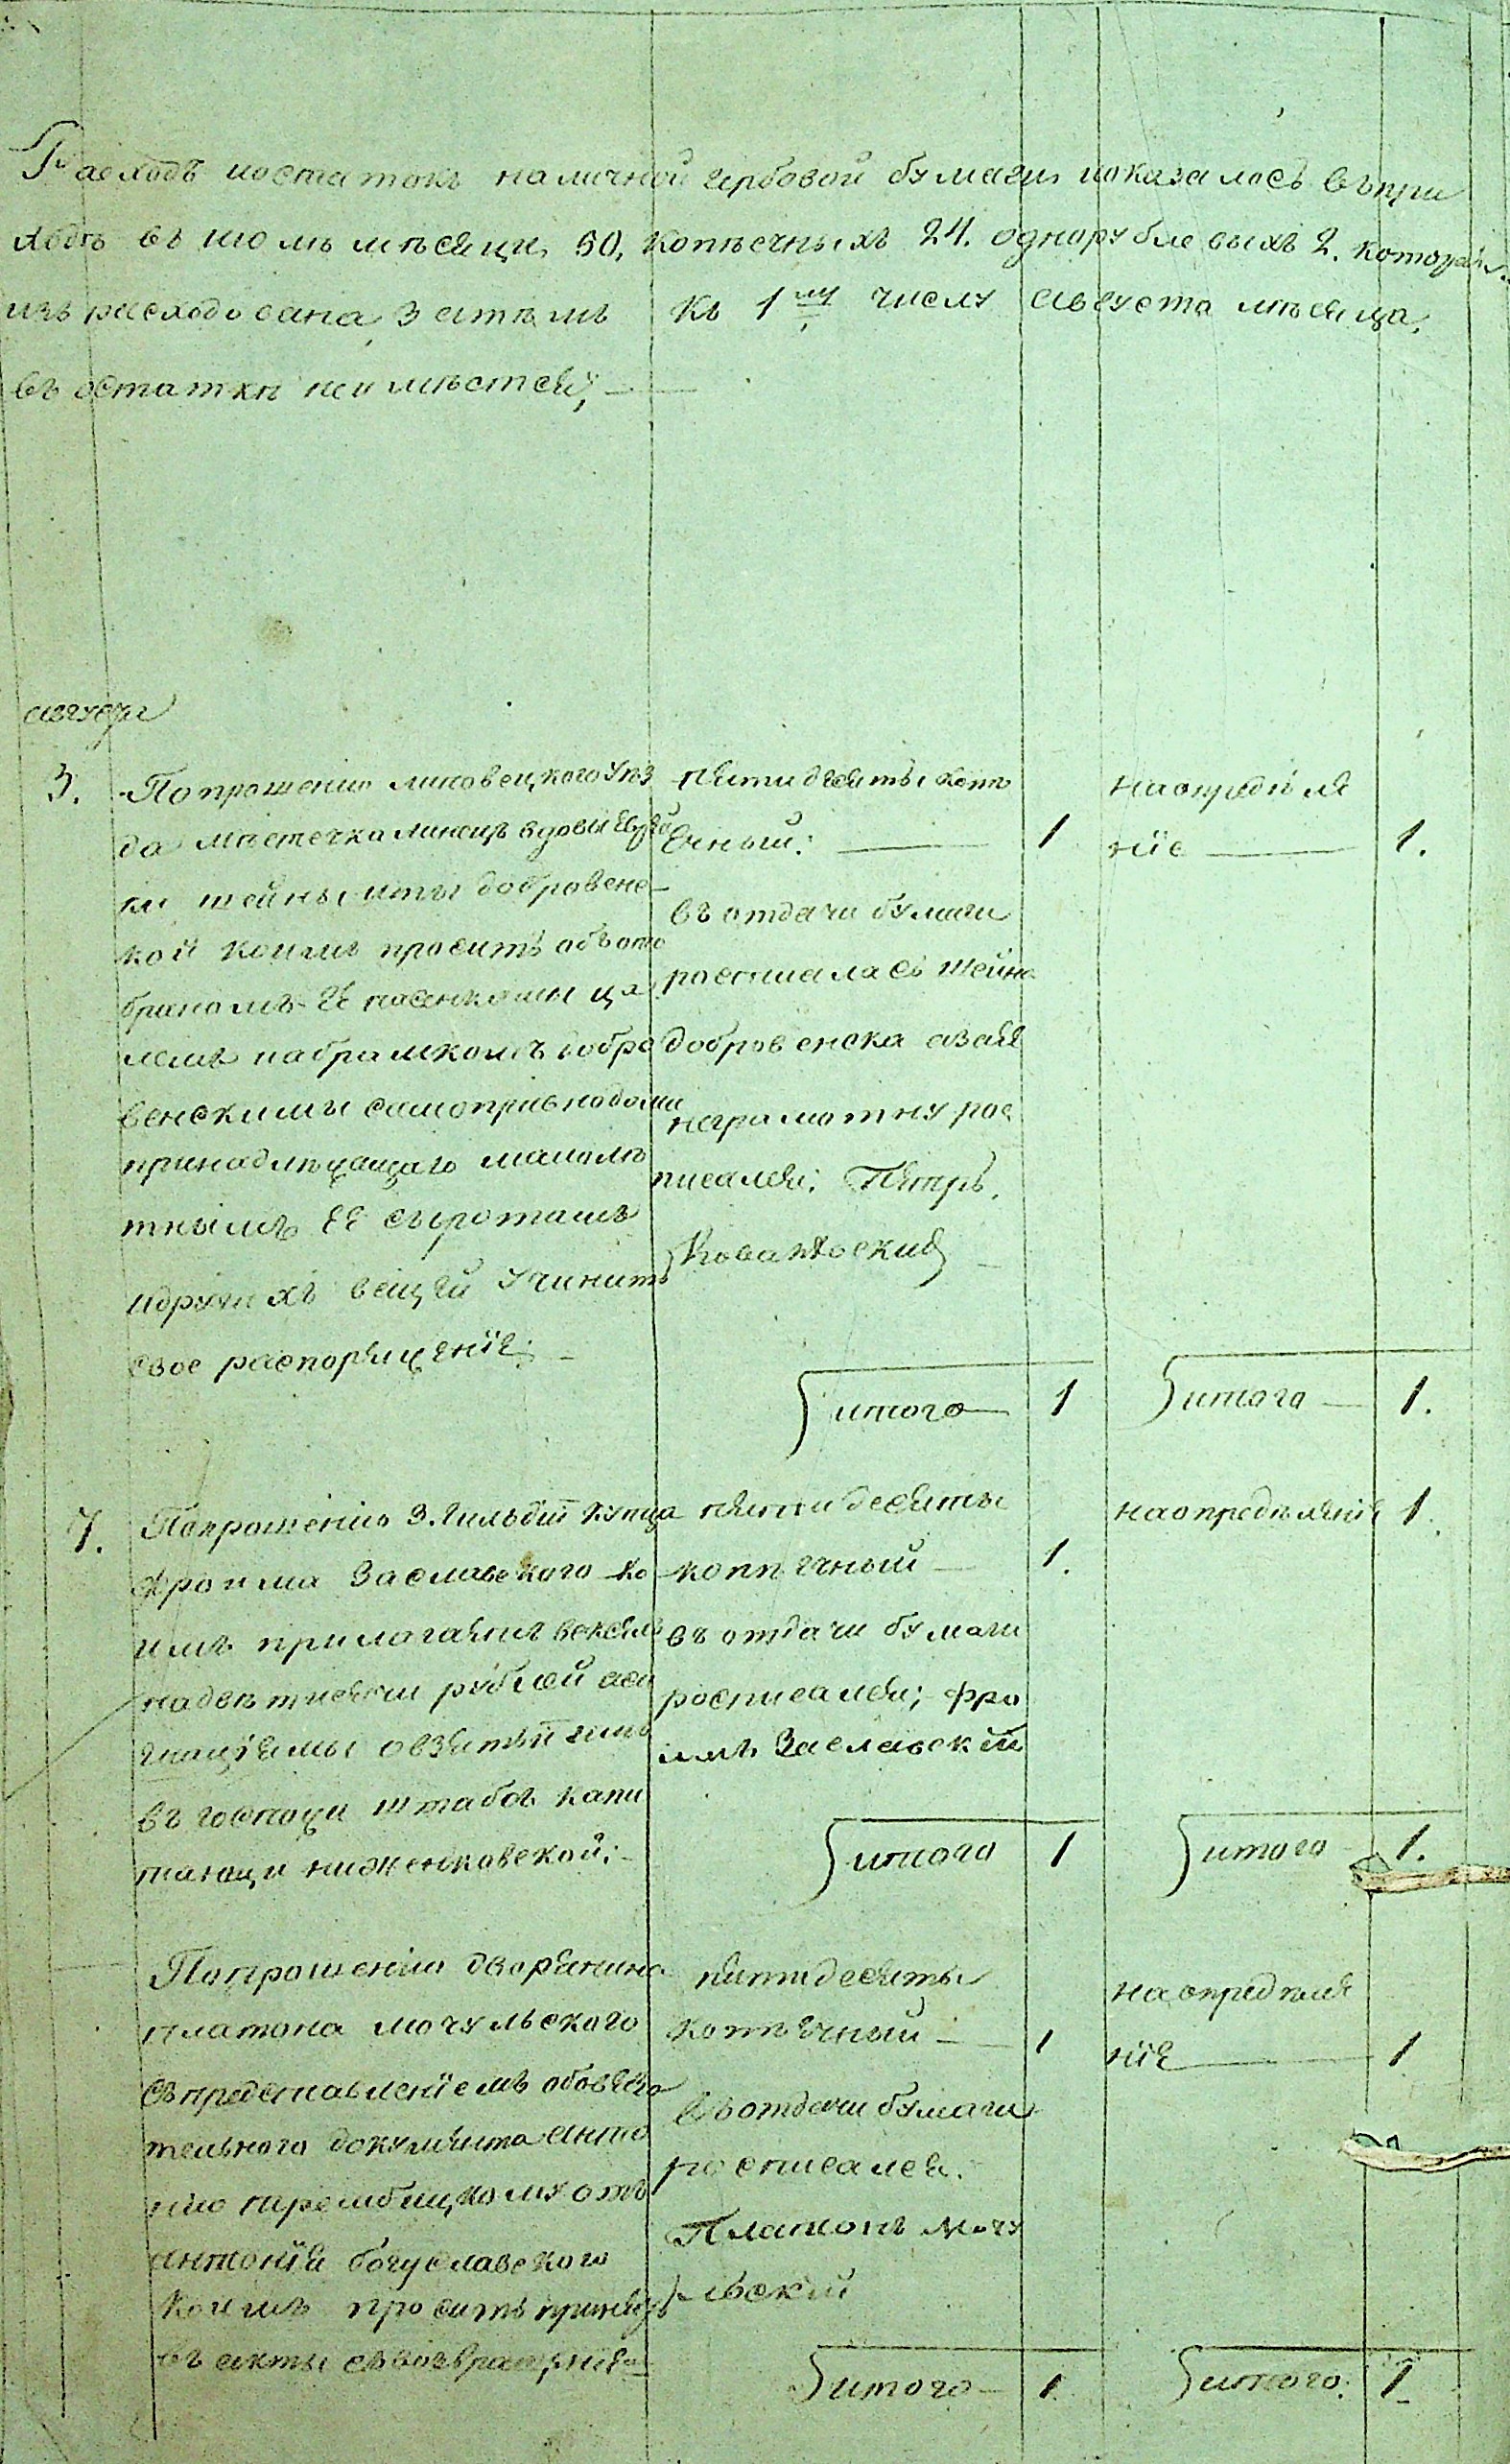 Расходъ иостатокъ наличной гербовой бумаги показалось въпри
ходѣ въ июль мѣсяцы, 50, копѣечныхъ 24. однорублевыхъ 2. которая
израсходована, Затѣмъ къ 1му числу августа мѣсяца,
въ остаткѣ неимѣется; —
августа
3.
Попрошению липовецкого Уѣз
да мѣстечка линецъ вдовы Еврей
ки шейны добровенс
кой коимъ проситъ объото
браномъ Ее
лемъ иабрамкомъ добро
венскимы
принадлѣцащаго малолѣ
тнымъ Ее сыротамъ
идругихъ вещей Учинить
свое распоряцение; —
пятидесяты копѣ
ечный: — 1
въ отдачи бумаги
росписалась шейна
добровенска азаея
неграмотну рос
писался: Петръ,
Ковалковский
наопредѣля
ніе — 1.
итого — 1
итого — 1.
7.
Попрошению 3. Гильдіи Купца
Фроима Заславского ко
имъ прилагаяитъ вексель
надвѣ тисячи рублей аси
гнацїямы овзятьїи
въ госпожи штабсъ капи
танши нижентковской; —
пятидесяты
копѣечный — 1.
въ отдачи бумаги
росписался; Фро
имъ Заславскій
наопредѣленіе 1.
итого 1
итого 1.
Попрошению дворянина
платона мочульского
съпредставлениемъ обовяза
тельного документа анто
нию отъ
антонія богуславского
коимъ проситъ принять
въ акты
пятидесяты
копѣечный — 1
въ отдачи бумаги
росписался.
Платонъ Мочу
льский
наопредѣле
ніе — 1
итого — 1
итого: 1